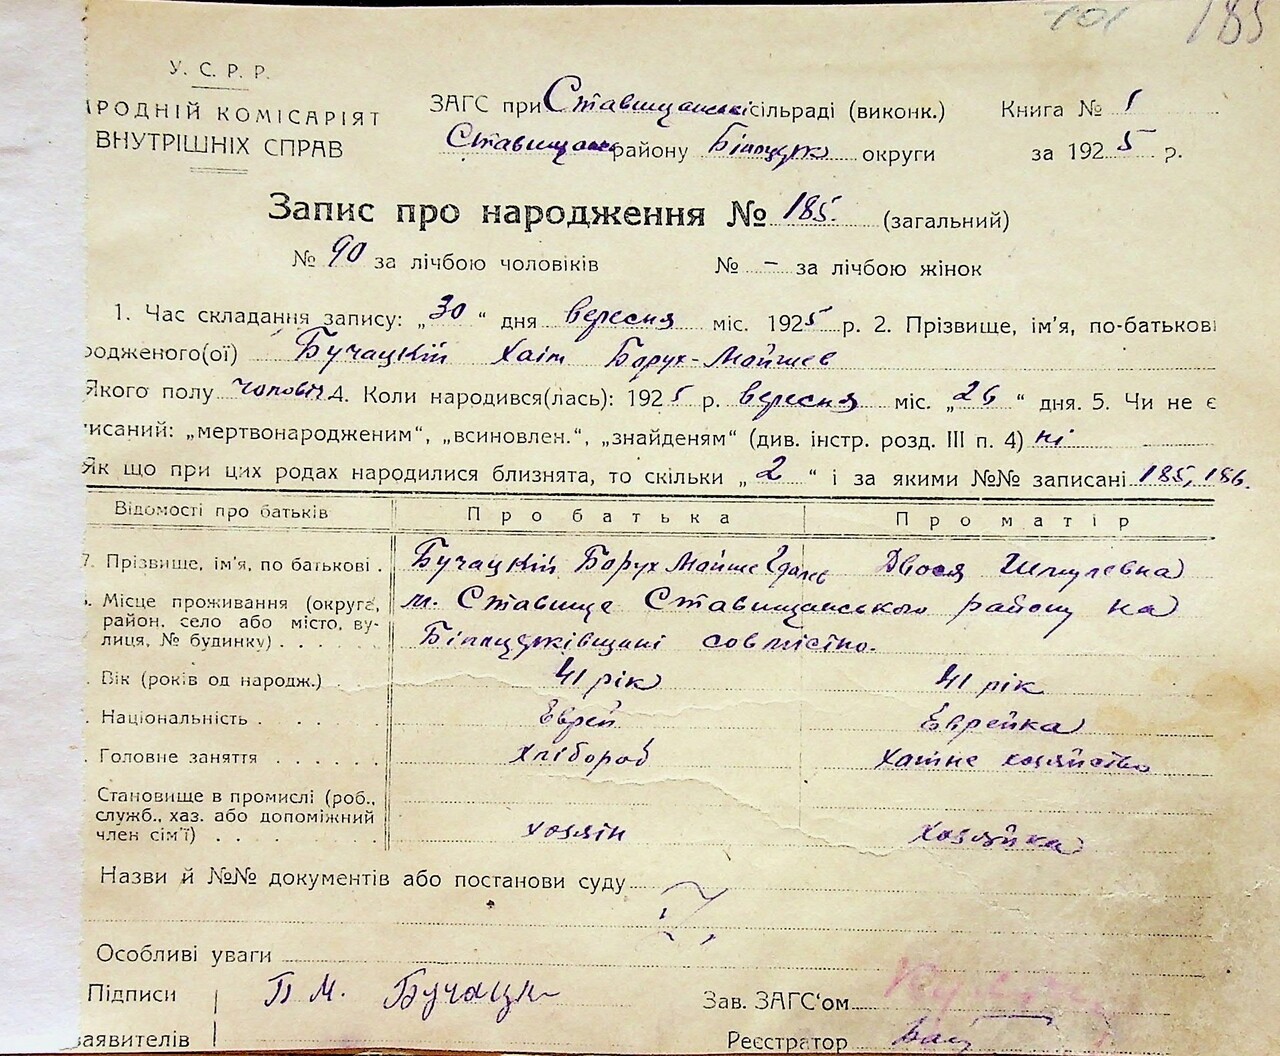 101 185
У. С. Р. Р.
АРОДНІЙ КОМІСАРІЯТ
ВНУТРІШНІХ СПРАВ
ЗАГС при Ставищанські сільраді (виконк.) Книга № 1
Ставищан району Білоцерк округи за 1925 р.
Запис про народження № 185. (загальний)
№ 90 за лічбою чоловіків № – за лічбою жінок
1. Час складання запису: „30“ дня вересня міс. 1925 р. 2. Прізвище, ім'я, по-батькові
родженого(ої) Бучацкій Хаім Борух-Мойшев
Якого полу чоловіч 4. Коли народився(лась): 1925 р. вересня міс. „26“ дня. 5. Чи не є
писаний: „мертвонародженим“, „всиновлен.“, „знайденям“ (див. інстр. розд. III п. 4) ні
Як що при цих родах народилися близнята, то скільки „2“ і за якими №№ записані 185, 186.
Відомості про батьків Про батька Про матір
7. Прізвище, ім'я, по батькові . Бучацкій Борух Мойше Двося Шмулевна
Місце проживання (округа, м. Ставище Ставищанського району на
район, село або місто, ву-
лиця, № будинку) . . . . . Білоцерківщині совмістно.
. Вік (років од народж.) . 41 рік 41 рік
. Національність . . . . . . Еврей Еврейка
. Головне заняття . . . . . . Хлібороб Хатне хозяйство
Становище в промислі (роб.,
служб., хаз. або допоміжний
член сім'ї) . . . . . . . . хозяін хозяйка
Назви й №№ документів або постанови суду
Особливі уваги
Підписи Б М. Бучацк Зав. ЗАГС'ом
заявителів Реєстратор